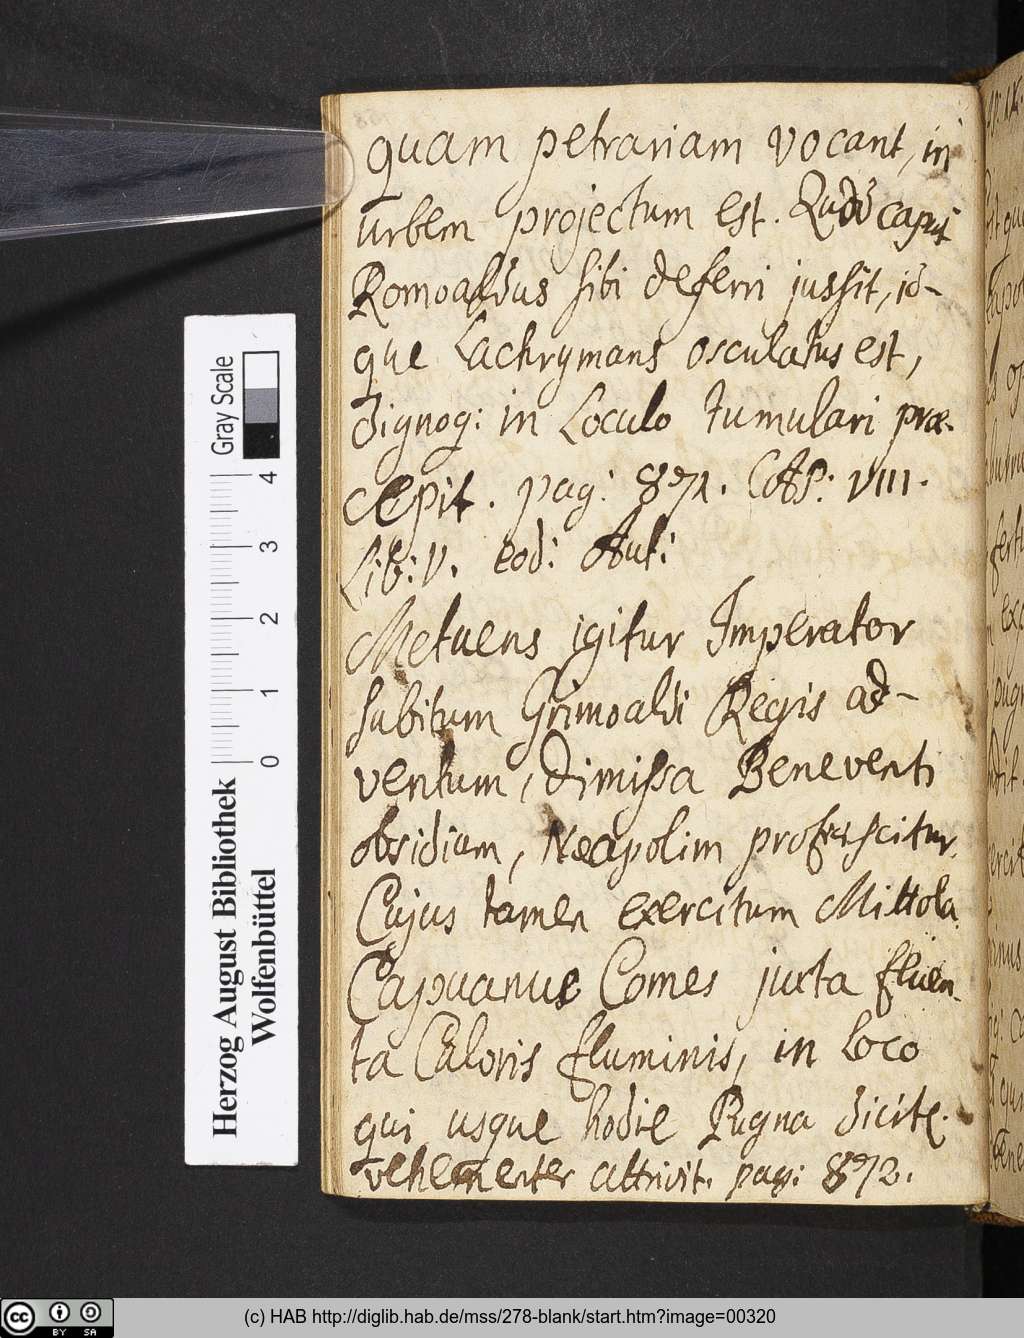 quam petrariam vocant, in
urbem projectum est. Quod caput
Romoaldus sibi deferri jussit, id-
que Lachrymans osculatus est,
dignoq: in Loculo tumulari præ-
cepit. pag: 871. CAP: VIII.
Lib: V. eod: Aut:
Metuens igitur Imperator
subitum Grimoaldi Regis ad-
ventum, dimissa Beneventi
obsidiam, Neapolim proficiscitur.
Cujus tamen exercitum Mittola
Capuanus Comes juxta fluen-
ta Caloris fluminis, in loco
qui usque hodie Pugna dicitr.
vehementer attrivit. pag: 872.
Herzog August Bibliothek
Wolfenbüttel
0 1 2 3 4
Gray Scale
cc BY SA
(c) HAB http://diglib.hab.de/mss/278-blank/start.htm?image=00320